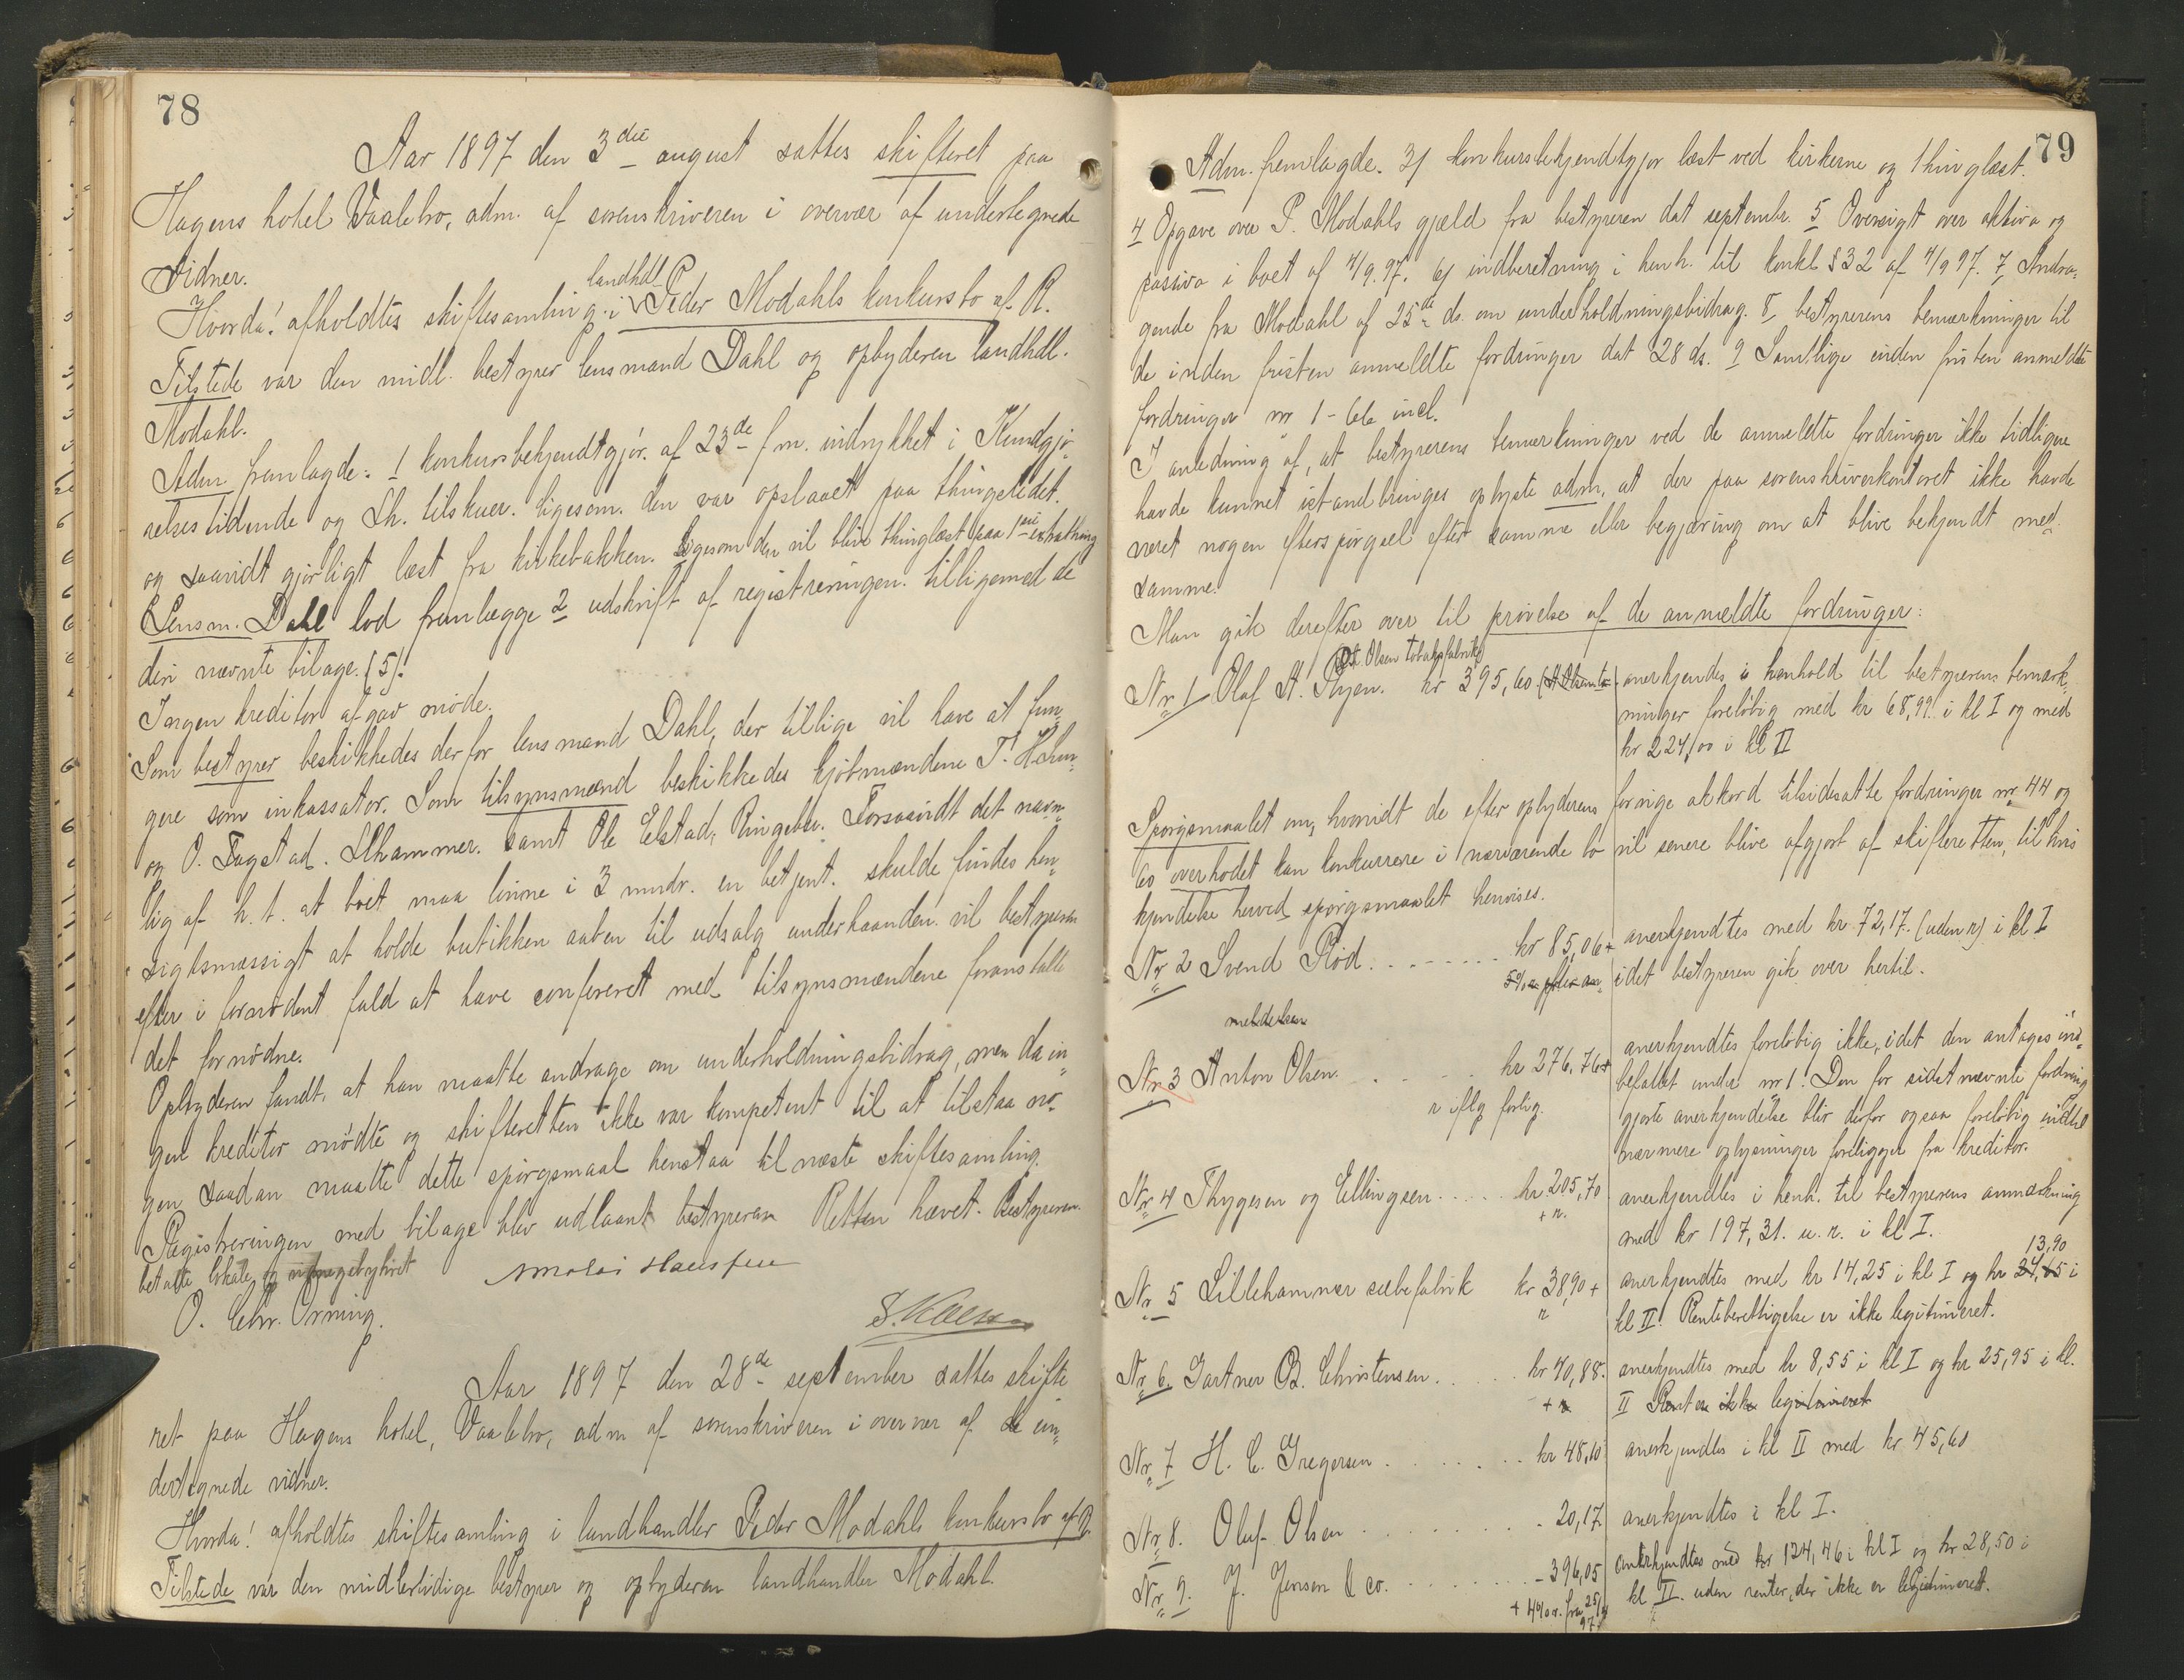 78
Aar 1897 den 3die august sattes skifteret paa
Hagens hotel Vaalebro, adm. af sorenskriveren i overvær af undertegnede
vidner.
Hvorda! afholdtes skiftesamling i landhdl. Peder Modahls konkursbo af R.
Tilstede var den midl. bestyrer lensmand Dahl og opbyderen landhdl.
Modahl.
Adm fremlagde: 1 konkursbekjendtgjør. af 23de f.m. indrykket i Kundgjø-
relsestidende og Lh. tilskuer. ligesom den var opslaaet paa thingstedet.
og saavidt gjørligt læst fra kirkebakken. Ligesom den vil blive thinglæst paa 1ste extrathing
Lensm. Dahl lod fremlægge 2 udskrift af registreringen. tilligemed de
deri nævnte bilage. (5).
Ingen kreditor afgav møde.
Som bestyrer beskikkedes derfor lensmand Dahl, der tillige vil have at fun-
gere som inkassator. Som tilsynsmænd beskikkedes kjøbmændene T.
og O. Fagstad. Lhammer. samt Ole Elstad, Ringebu. Forsaavidt det navn-
lig af h. t. at boet maa tømme i 3 mndr. en betjent. skulde findes hen-
sigtsmæssigt at holde butikken aaben til udsalg underhaanden. vil bestyreren
efter i fornødent fald at have confereret med tilsynsmændene foranstalte
det fornødne.
Opbyderen fandt, at han maatte andrage om underholdningsbidrag, men da in-
gen kreditor mødte og skifteretten ikke var kompetent til at tilstaa no-
gen saadan maatte dette spørgsmaal henstaa til næste skiftesamling.
Registreringen med bilage blev udlaant bestyreren Retten hævet. Bestyreren
betalte lokale og
O. Chr. Orning.
Aar 1897 den 28de september sattes skifte
ret paa Hagens hotel, Vaalebro, adm af sorenskriveren i overvær af de un-
dertegnede vidner.
Hvorda! afholdtes skiftesamling i landhandler Peder Modahls konkursbo af R.
Tilstede var den midlertidige bestyrer og opbyderen landhandler Modahl.
79
Adm. fremlagde. 3/ konkursbekjendtgjør læst ved kirkerne og thinglæst.
4 Opgave over P. Modahls gjæld fra bestyreren dat septembr. 5 Oversigt over aktiva og
passiva i boet af 4/9.97. 6/ indberetning i henh. til konkl §32 af 4/9 97. 7, Andra-
gende fra Modahl af 25de ds. om underholdningsbidrag. 8, bestyrerens bemærkninger til
de inden fristen anmeldte fordringer dat 28 ds. 9 Samtlige inden fristen anmeldte
fordringer nr 1 - 66 incl.
I anledning af, at bestyrerens bemærkninger ved de anmeldte fordringer ikke tidligere
havde kunnet istandbringes oplyste adm, at der paa sorenskriverkontoret ikke havde
været nogen efterspørgsel efter samme eller begjæring om at blive bekjendt med
samme.
Man gik derefter over til prøvelse af de anmeldte fordringer:
Nr 1 Olaf A. kr 395,60 anerkjendes i henhold til bestyrerens bemærk-
ninger foreløbig med kr 68,99 i kl I og med
kr 224,00 i kl II
Spørgsmaalet om, hvorvidt de efter opbyderens forrige akkord tilsidesatte fordringer nr 44 og
60 overhodet kan konkurrere i nærværende bo vil senere blive afgjort af skifteretten, til hvis
kjendelse herved spørgsmaalet henvises.
Nr 2 Svend Rød. kr 85,06 + anerkjendtes med kr 72,17. (uden r) i kl I
5% r. efter an- idet bestyreren gik over hertil.
meldelsen
Nr 3 Anton Olsen. kr 276,76+ anerkjendtes foreløbig ikke, idet den antages ind-
r iflg forlig. befattet under nr 1. Den for sidstnævnte fordring
gjorte anerkjendelse blir derfor ogsaa foreløbig indtil
nærmere oplysninger foreligger fra kreditor.
Nr 4 Thygesen og Ellingsen kr 205,70 anerkjendtes i henh. til bestyrerens anmærkning
+ r. med kr 197,31. u. r. i kl I.
Nr 5 Lillehammer sæbefabrik kr 38,90 + anerkjendtes med kr 14,25 i kl I og kr 13,90 i
r kl II. Renteberettigelse er ikke legitimeret.
Nr 6. Gartner B. Christensen. kr 40,88. anerkjendtes med kr 8,55 i kl I og kr 25,95 i kl.
+ r II Renter ikke legitimeret
Nr 7 H. C. Gregersen kr 48,60 anerkjendtes i kl II med kr 45,60
Nr 8. Oluf Olsen - 20,17. anerkjendtes i kl I.
Nr 9. J. Jensen & co. - 396,05 anerkjendtes med kr 124,46 i kl I og kr 28,50 i
+ 4% r. fra 97. kl II. uden renter, der ikke er legitimeret.